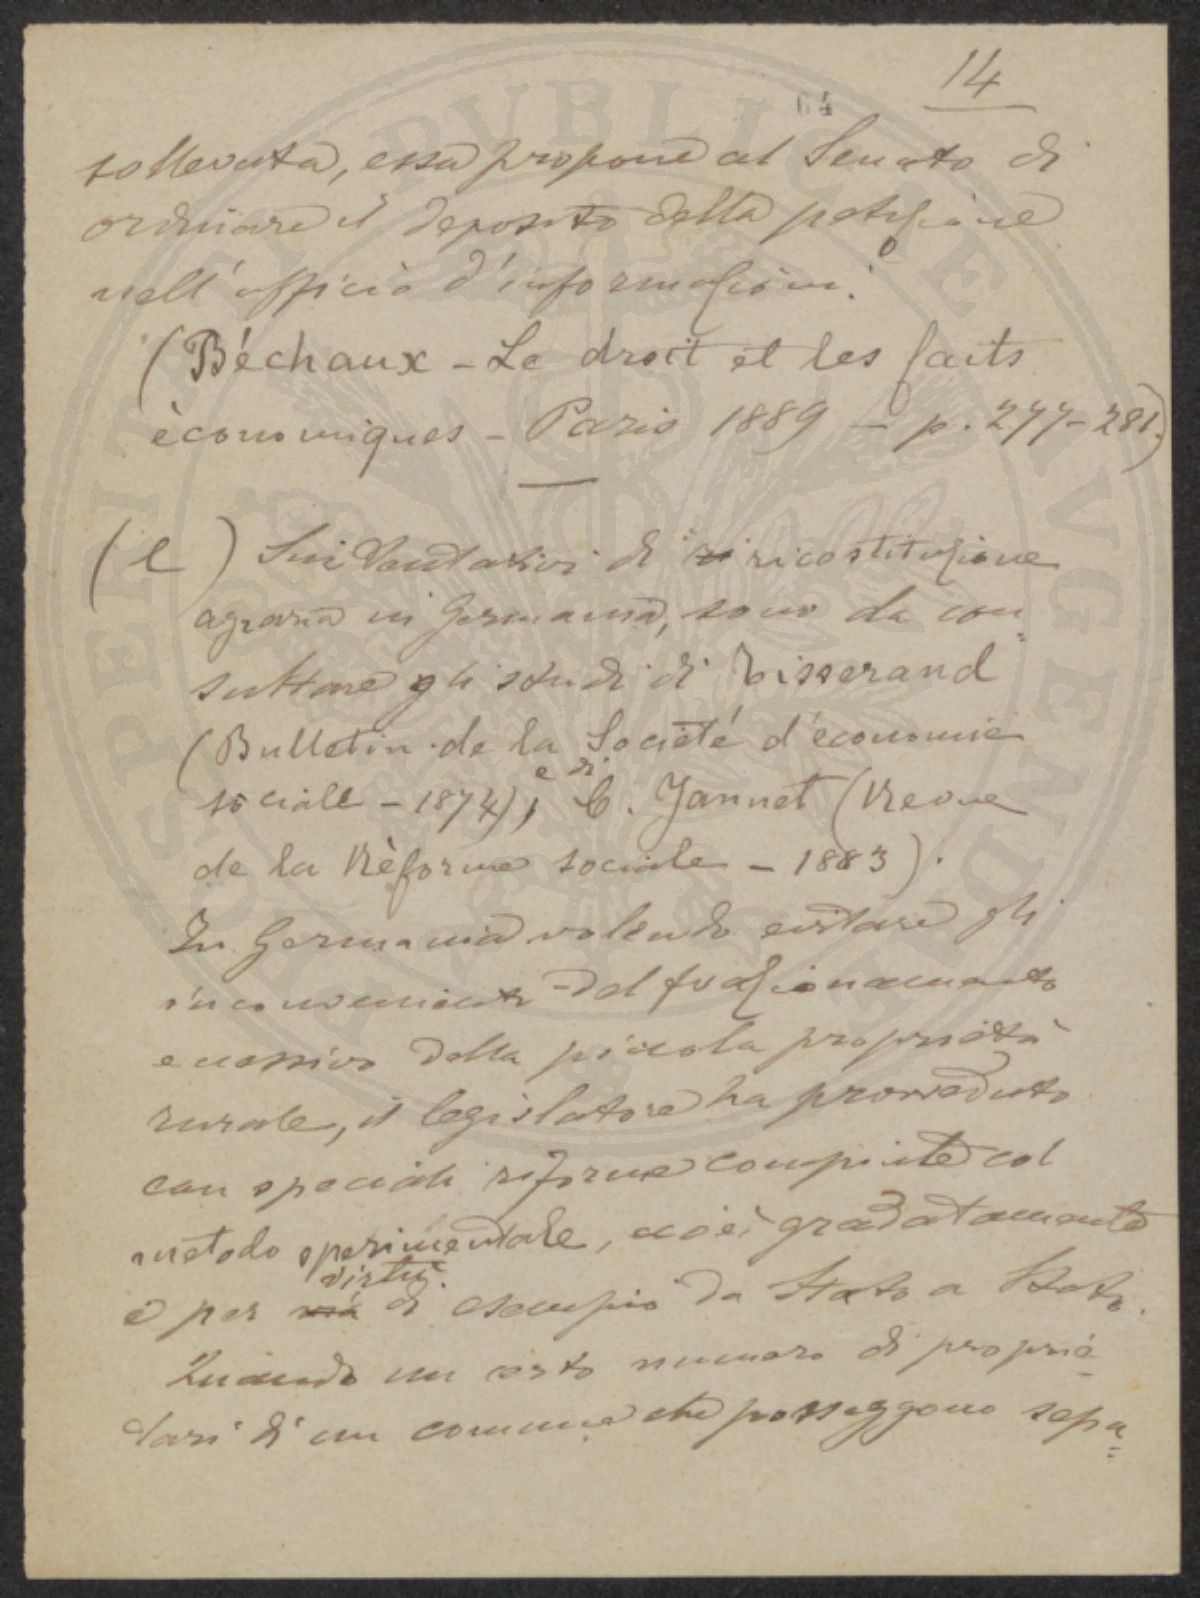 14
64
sollevata, essa propone al Senato di
ordinare il deposito della petizione
nell'officio d'informazioni.
(Béchaux - Le droit et les faits
èconomiques - Paris 1889 - p. 277-281.)
(e) Sui tentativi di ri ricostituzione
agraria in Germania, sono da con=
sultare gli studi di Tisserand
(Bulletin de la Societé d'économie
sociale - 1874), e di C. Jannet (Revue
de la Rèforme sociale - 1883).
In Germania volendo evitare gli
inconvenienti del frazionamento
eccessivo della piccola proprietà
rurale, il legislatore ha provveduto
con speciali riforme compiute col
metodo sperimentale, cioè gradatamente
e per via virtù di esempio da Stato a Stato.
Quando un certo numero di proprie=
tari di un comune che posseggono sepa=
HOSPETIT PUBLICAE AUGENDIS